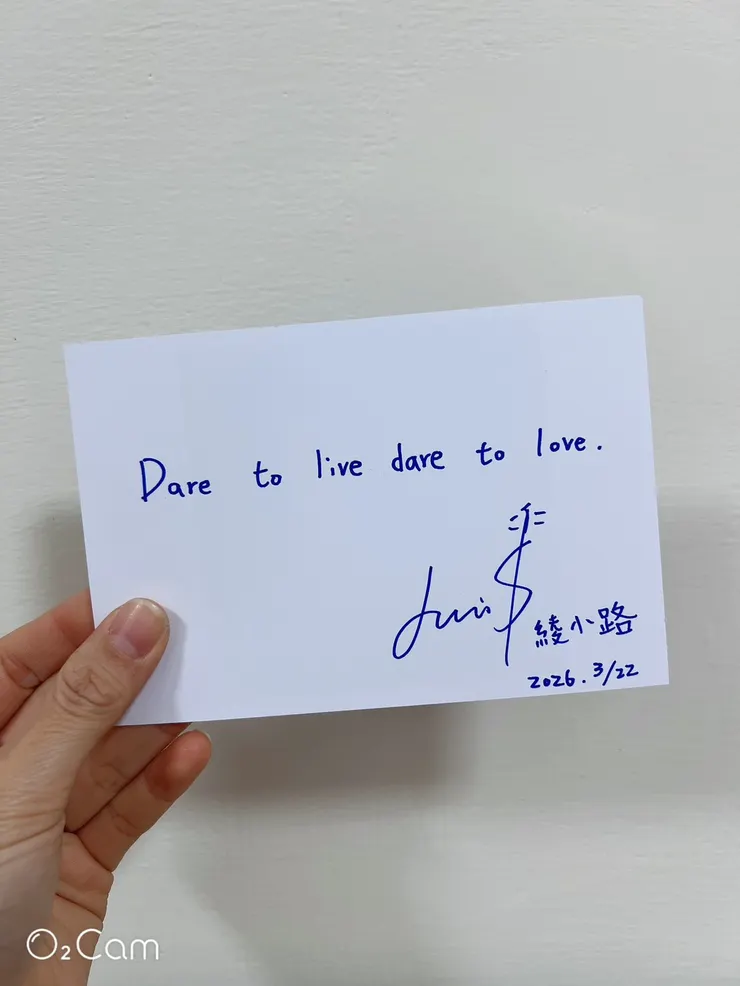 Dare to live dare to love.
綾小路
2026.3/22
O₂Cam